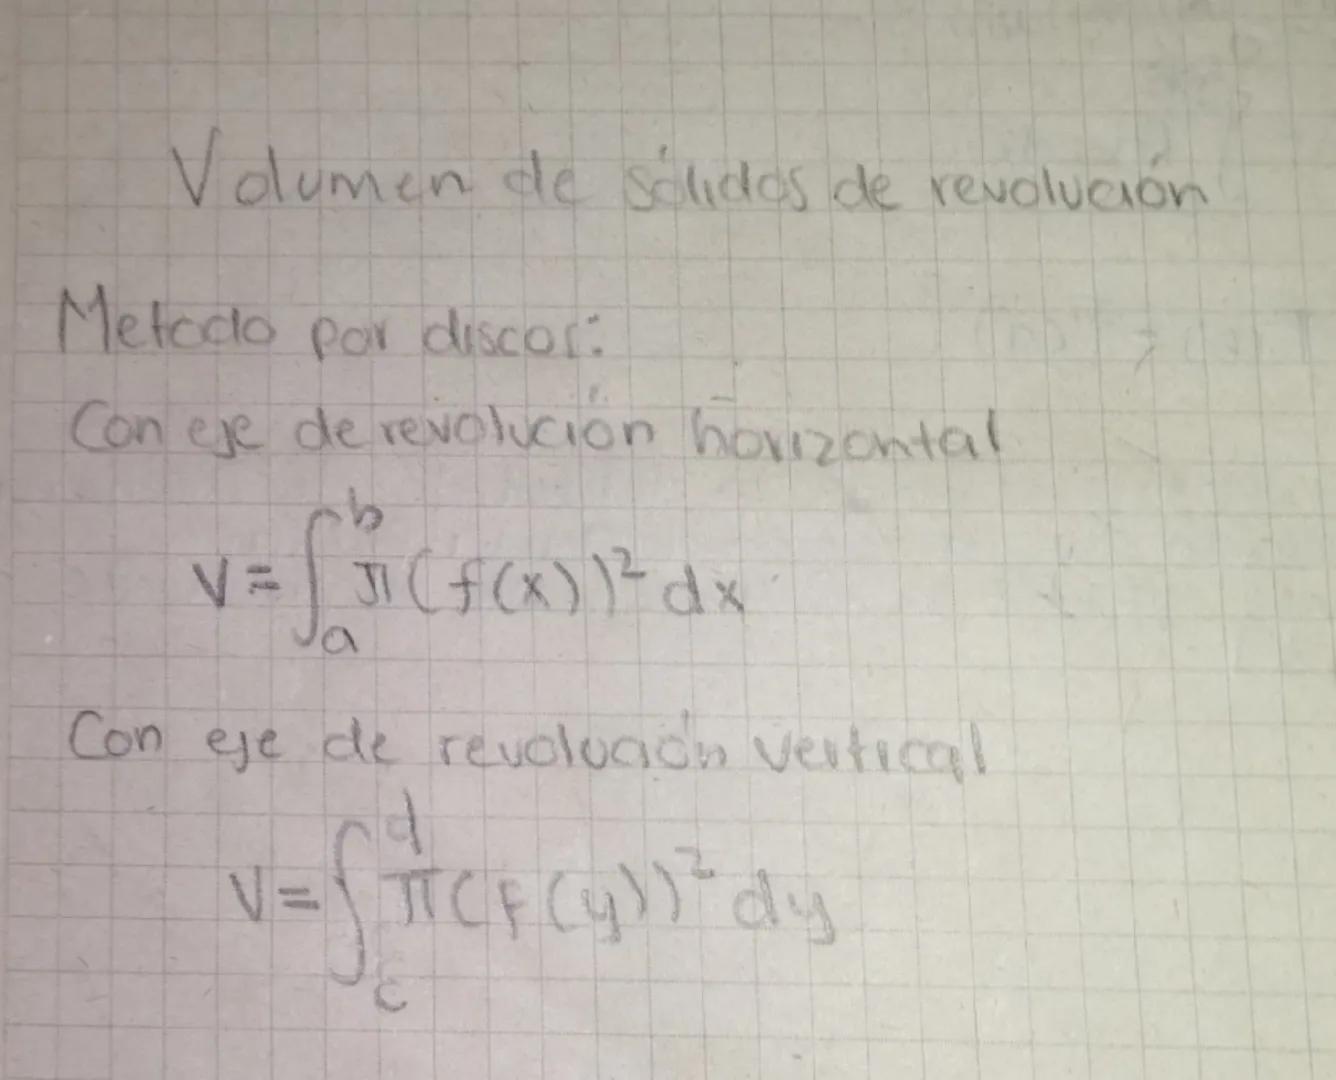 Volumen de sólidos de revolución
Metodo por discos:
Con eje de revolución horizontal
V = ∫_a^b π(f(x))² dx
Con eje de revolución vertical
V = ∫_c^d π(f(y))² dy